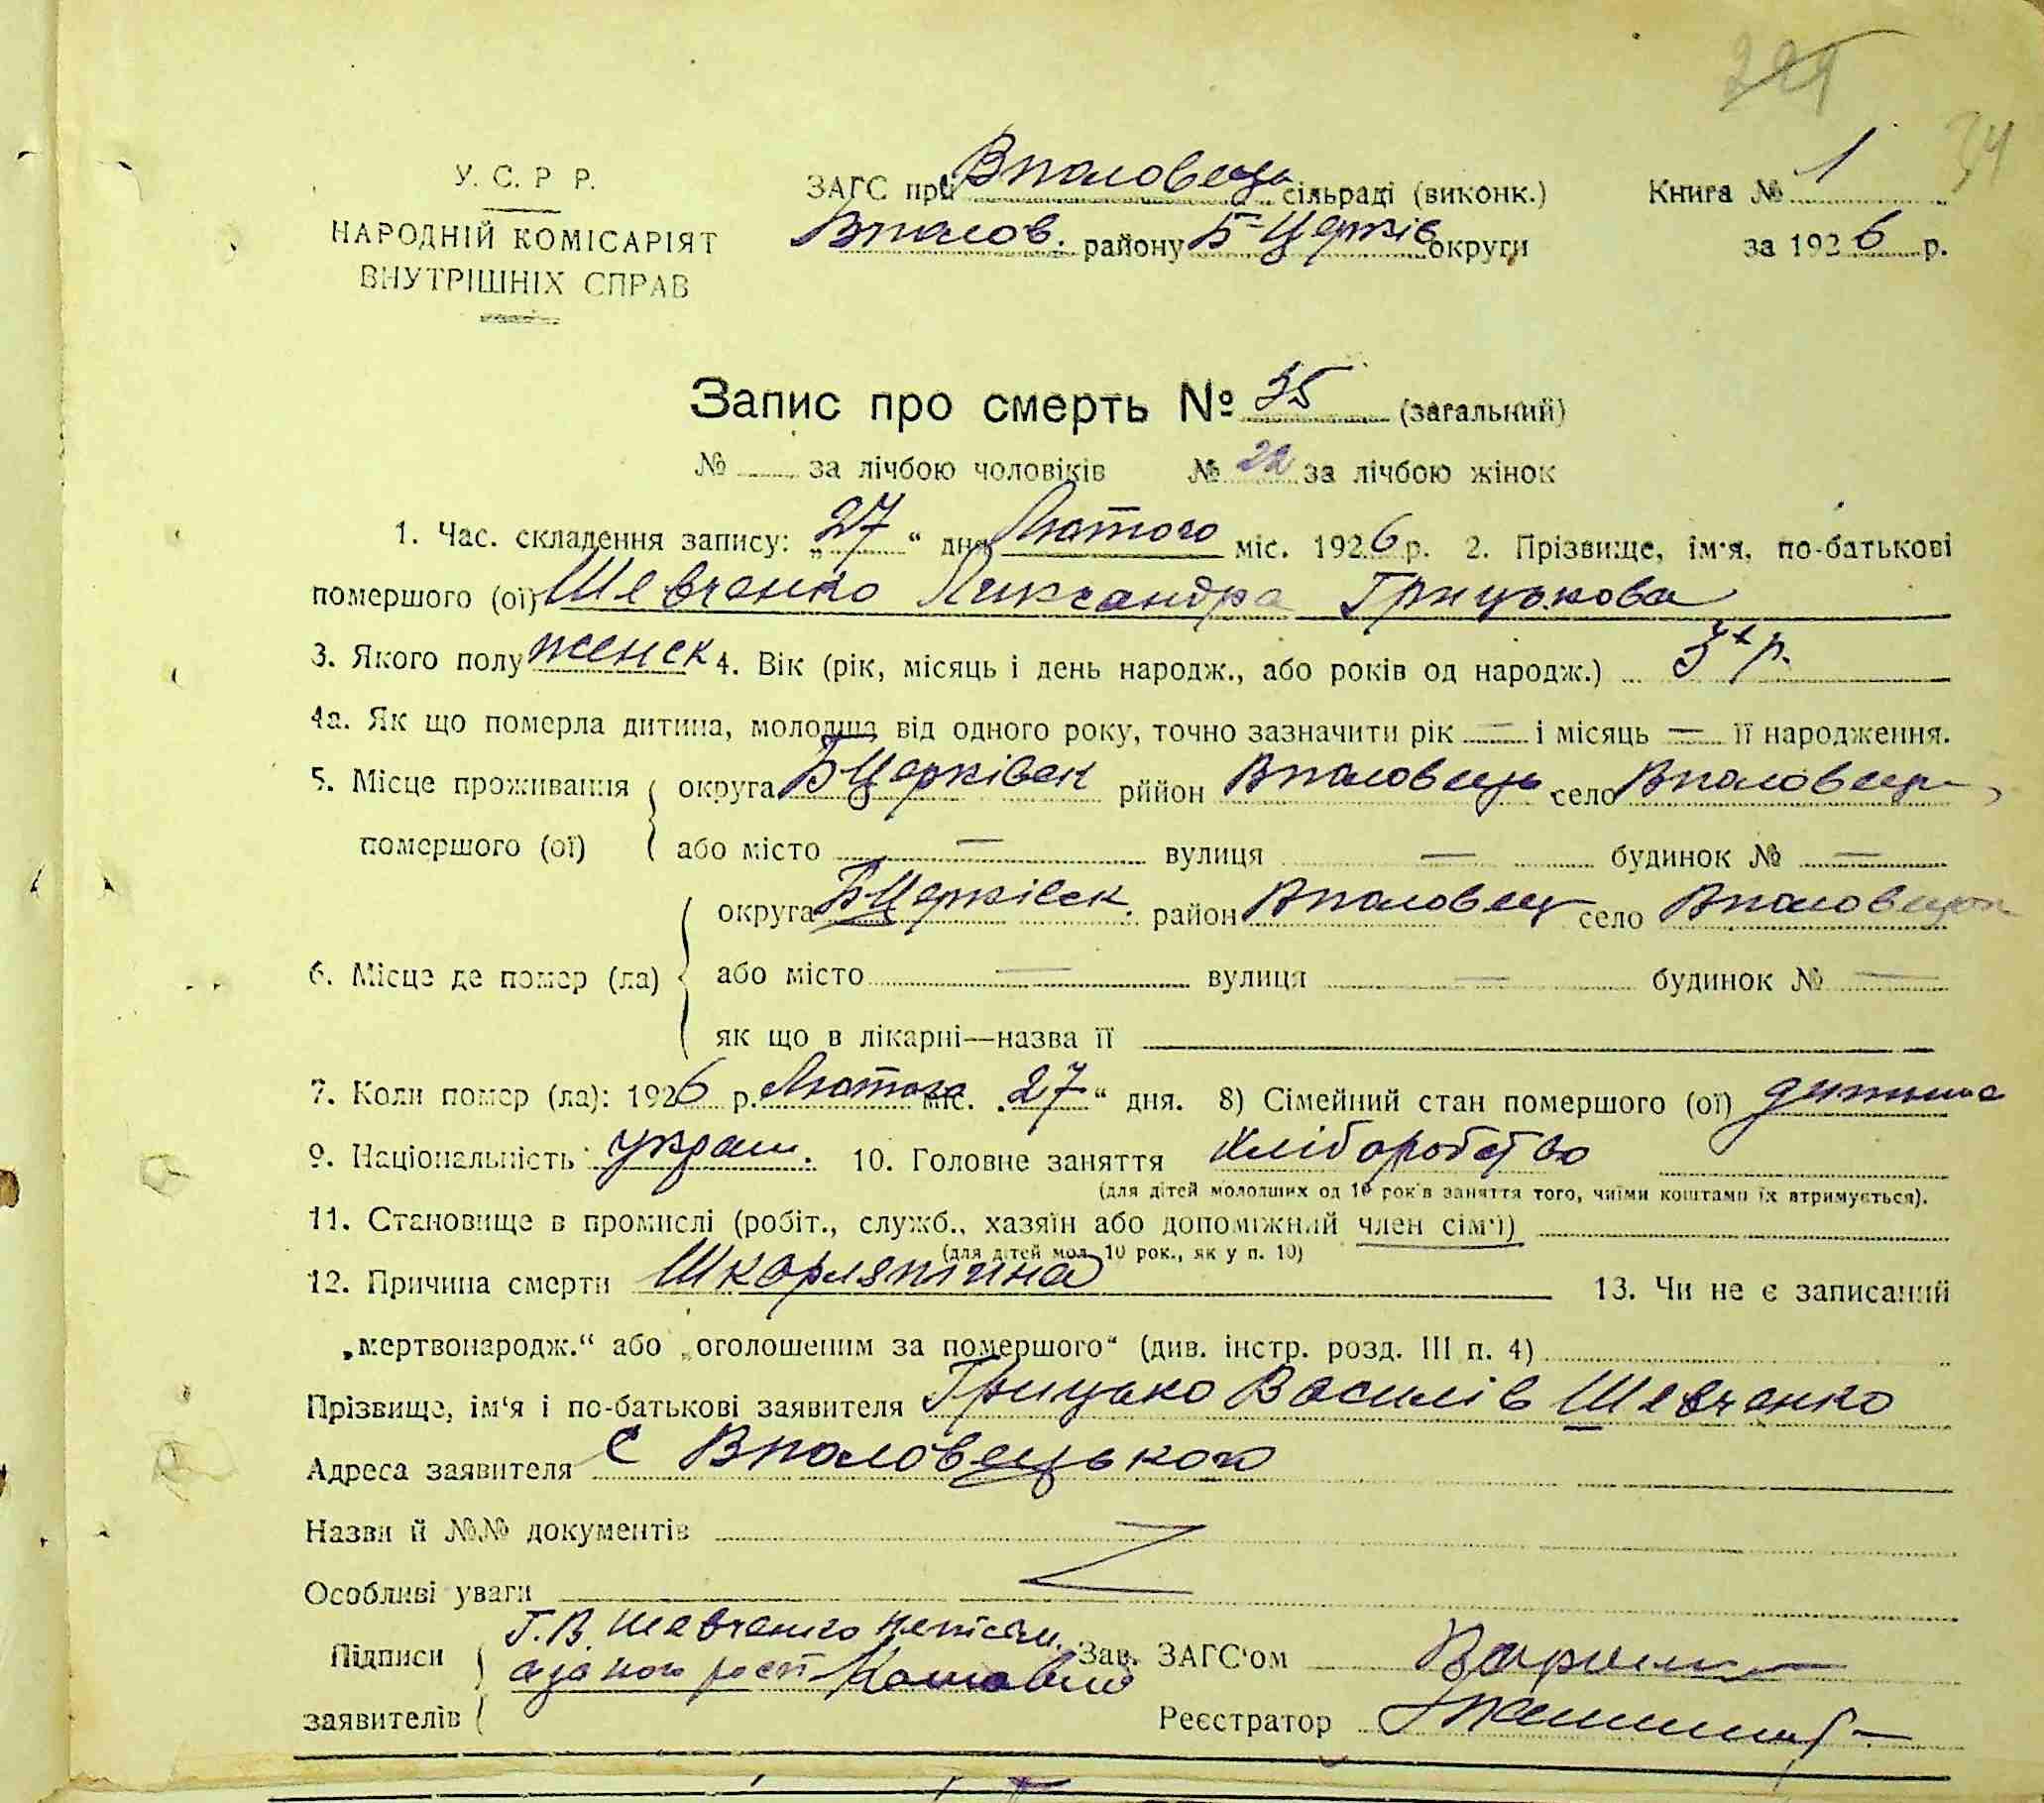 224
34
У. С. Р Р.
НАРОДНІЙ КОМІСАРІЯТ
ВНУТРІШНІХ СПРАВ
ЗАГС при Вполовець сільраді (виконк.)
Вполов. району Б-Церків округи
Книга № 1
за 1926 р.
Запис про смерть № 35 (загальний)
№ за лічбою чоловіків № 22 за лічбою жінок
1. Час. складення запису: „27“ дня Лютого міс. 1926 р. 2. Прізвище, ім'я, по-батькові
помершого (ої) Шевченко Лександра Грицькова
3. Якого полу женск 4. Вік (рік, місяць і день народж., або років од народж.) 3х р.
4а. Як що померла дитина, молодша від одного року, точно зазначити рік — і місяць — її народження.
5. Місце проживання округа БЦерківськ рийон Вполовець село Вполовец
помершого (ої) або місто — вулиця — будинок № —
округа БЦерківськ. район Вполовец село Вполовецьк
6. Місце де помер (ла) або місто — вулиця — будинок № —
як що в лікарні—назва її
7. Коли помер (ла): 1926 р. Лютого міс. „27“ дня. 8) Сімейний стан помершого (ої) дитина
9. Національність україн. 10. Головне заняття Хліборобство
(для дітей молодших од 10 рок'в заняття того, чиїми коштами їх втримується).
11. Становище в промислі (робіт., служб., хазяїн або допоміжний член сім'ї)
(для дітей мол. 10 рок., як у п. 10)
12. Причина смерти Шкорлятина 13. Чи не є записаний
„мертвонародж.“ або „оголошеним за помершого“ (див. інстр. розд. III п. 4)
Прізвище, ім'я і по-батькові заявителя Грицько Василів Шевченко
Адреса заявителя с Вполовецького
Назви й №№ документів
Особливі уваги
Підписи Г. В. Шевченко неписм. Зав. ЗАГС'ом
заявителів Реєстратор